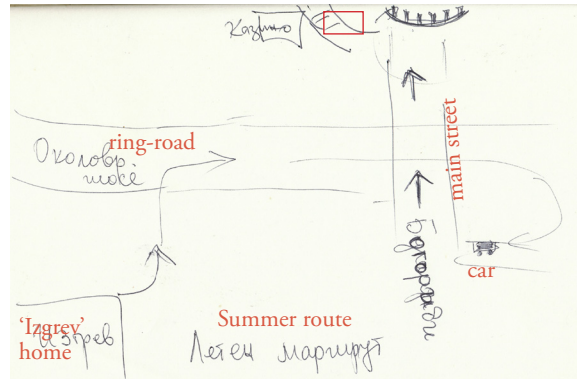 Казино
ring-road
Околовр.
шосе
main street
Богориди
car
'Izgrev'
home
Изгрев
Summer route
Летен маршрут